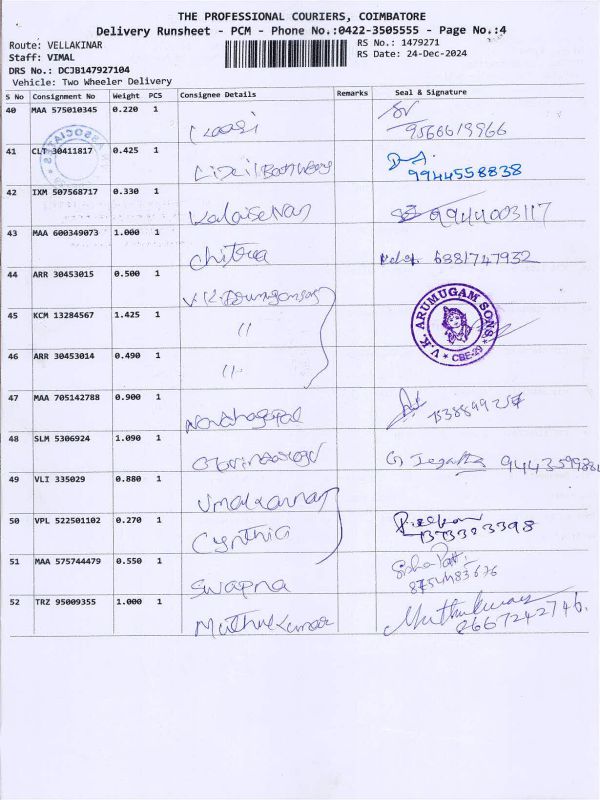 THE PROFESSIONAL COURIERS, COIMBATORE
Delivery Runsheet - PCM - Phone No.:0422-3505555 - Page No.:4
Route: VELLAKINAR
RS No.: 1479271
Staff: VIMAL
RS Date: 24-Dec-2024
DRS No.: DCJB147927104
Vehicle: Two Wheeler Delivery
S No Consignment No Weight PCS Consignee Details Remarks Seal & Signature
40 MAA 575010345 0.220 1
9566619966
41 CLT 30411817 0.425 1
9944558838
42 IXM 507568717 0.330 1 Kalaiselvan 9944003117
43 MAA 600349073 1.000 1 Chitra 6381747932
44 ARR 30453015 0.500 1
45 KCM 13284567 1.425 1 "
V.K. ARUMUGAM SONS
* CBE-29 *
46 ARR 30453014 0.490 1 "
47 MAA 705142788 0.900 1 Nandhagopal
48 SLM 5306924 1.090 1
49 VLI 335029 0.880 1 Umakannan
50 VPL 522501102 0.270 1 Cynthia
51 MAA 575744479 0.550 1 Swapna
52 TRZ 95009355 1.000 1 Muthukumar Muthukumar
8667242746.